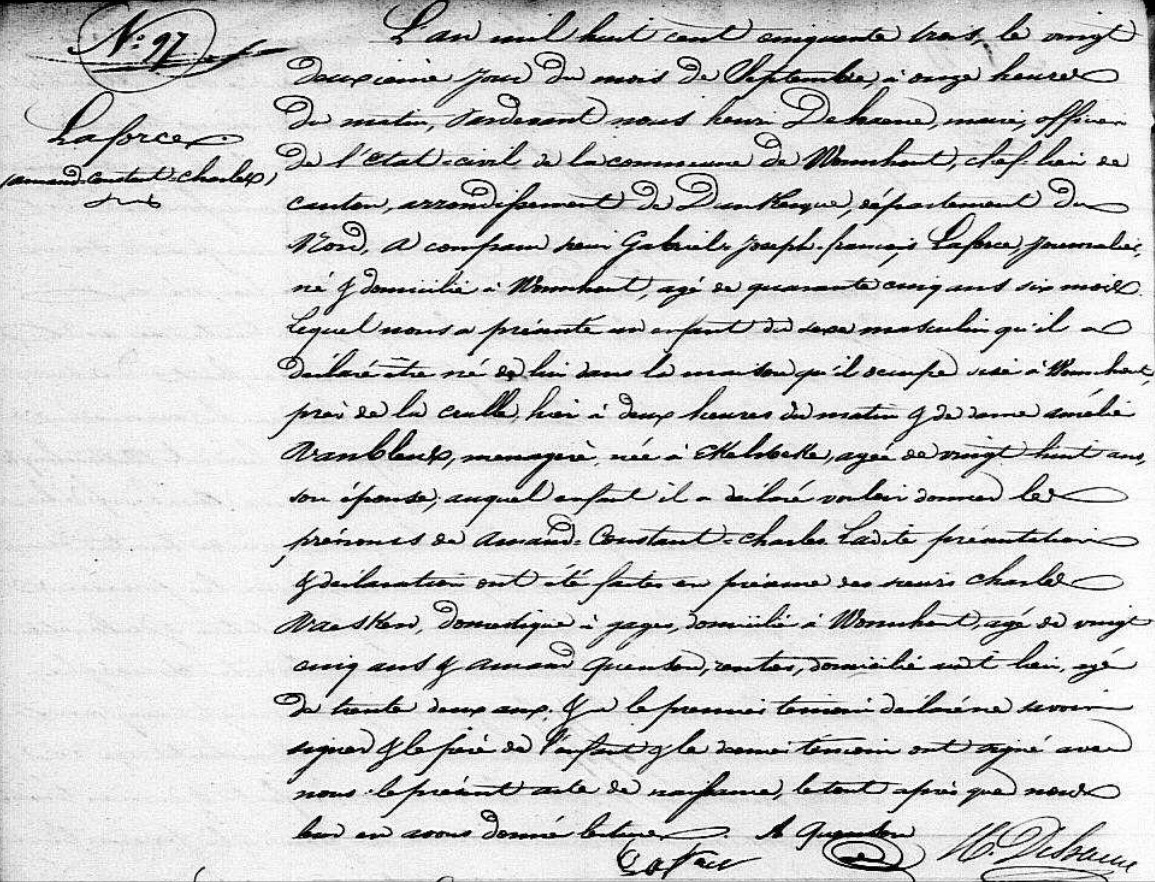 N° 97
Laforce
amand-constant-charles,
L'an mil huit cent cinquante trois, le vingt
deuxième jour du mois de Septembre, à onze heures
du matin, Pardevant nous henri Dehaene, maire, officier
de l'état-civil de la commune de Wormhout, chef-lieu de
canton, arrondissement de Dunkerque, département du
Nord, a comparu sieur Gabriel-Joseph-françois Laforce, journalier,
né & domicilié à Wormhout, agé de quarante cinq ans six mois
lequel nous a présenté un enfant du sexe masculin qu'il a
déclaré être né de lui dans la maison qu'il occupe sise à Wormhout,
près de la hier à deux heures du matin & de dame amélie
vanbleus, menagère, née à Ekelsbeke, agée de vingt huit ans,
son épouse, auquel enfant il a déclaré vouloir donner les
prénoms de amand-Constant-charles Ladite présentation
& déclaration ont été faites en présence des sieurs charles
domestique à gages, domicilié à Wormhout, agé de vingt
cinq ans & amand Quenson, rentier, domicilié audit lieu, agé
de trente deux ans. & le premier témoin déclaré ne savoir
signer & le père de l'enfant & le témoin ont signé avec
nous le présent acte de naissance, le tout après que nous
leur en avons donné lecture. A Quenson
H. Dehaene